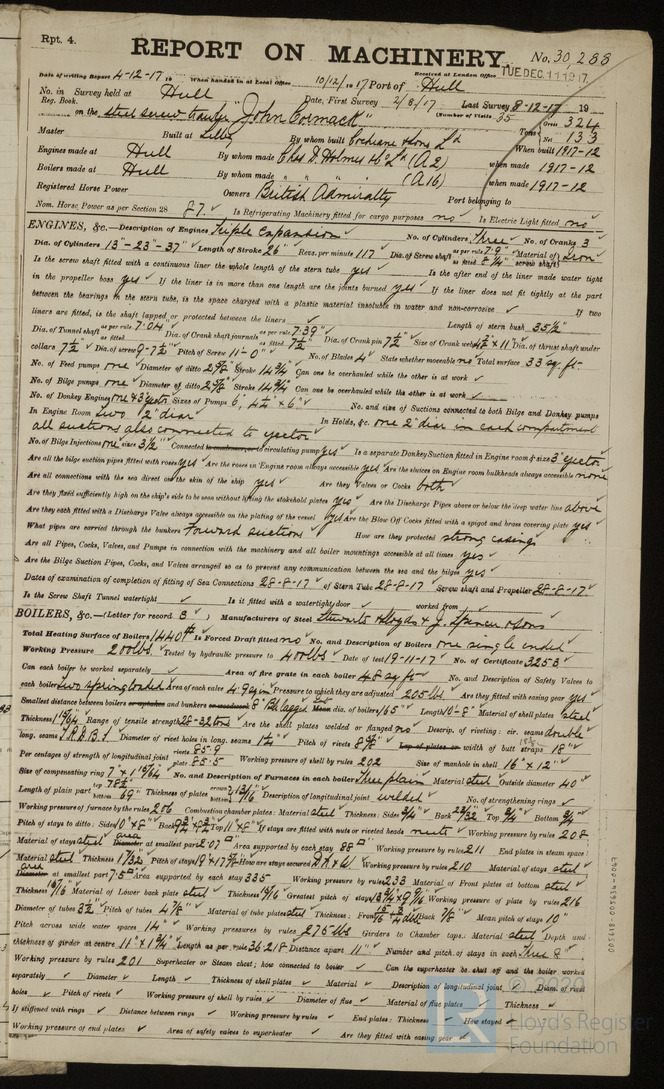 Rpt. 4.
REPORT ON MACHINERY.
No. 30,288
Date of writing Report 4-12-17 19 When handed in at Local Office 10/12/1917 Port of Hull
Received at London Office TUE DEC. 11 1917
No. in Reg. Book. Survey held at Hull Date, First Survey 2/8/17 Last Survey 8-12-17 19
(Number of Visits 35
on the steel screw trawler "John Cormack" Tons Gross 324 Net 133
Master Built at Selby By whom built Cochrane & Sons Ld When built 1917-12
Engines made at Hull By whom made Chas D. Holmes & Co Ld (A2) when made 1917-12
Boilers made at Hull By whom made " " " (A16) when made 1917-12
Registered Horse Power Owners British Admiralty Port belonging to
Nom. Horse Power as per Section 28 87. Is Refrigerating Machinery fitted for cargo purposes no Is Electric Light fitted no
ENGINES, &c.—Description of Engines Triple expansion No. of Cylinders Three No. of Cranks 3
Dia. of Cylinders 13"-23"-37" Length of Stroke 26" Revs. per minute 117 Dia. of Screw shaft as per rule 7.9" as fitted 8 1/4" Material of screw shaft Iron
Is the screw shaft fitted with a continuous liner the whole length of the stern tube yes Is the after end of the liner made water tight
in the propeller boss yes If the liner is in more than one length are the joints burned yes If the liner does not fit tightly at the part
between the bearings in the stern tube, is the space charged with a plastic material insoluble in water and non-corrosive ✓ If two
liners are fitted, is the shaft lapped or protected between the liners ✓ Length of stern bush 35 1/2"
Dia. of Tunnel shaft as per rule 7.04 as fitted Dia. of Crank shaft journals as per rule 7.39 as fitted 7 1/2" Dia. of Crank pin 7 1/2" Size of Crank webs 4 3/4 x 11" Dia. of thrust shaft under
collars 7 1/2" Dia. of screw 9-7 1/2" Pitch of Screw 11-0" No. of Blades 4 State whether moveable no Total surface 33 sq. ft.
No. of Feed pumps one Diameter of ditto 2 5/8" Stroke 14 3/4" Can one be overhauled while the other is at work ✓
No. of Bilge pumps one Diameter of ditto 2 5/8" Stroke 14 3/4" Can one be overhauled while the other is at work ✓
No. of Donkey Engines one & 3" ejector Sizes of Pumps 6", 4 1/4" x 6" No. and size of Suctions connected to both Bilge and Donkey pumps
In Engine Room Two 2" diar In Holds, &c. one 2" diar in each compartment
all suctions also connected to ejector
No. of Bilge Injections one sizes 3 1/2" Connected to circulating pump yes Is a separate Donkey Suction fitted in Engine room & size 3" ejector
Are all the bilge suction pipes fitted with roses yes Are the roses in Engine room always accessible yes Are the sluices on Engine room bulkheads always accessible none
Are all connections with the sea direct on the skin of the ship yes Are they Valves or Cocks both
Are they fixed sufficiently high on the ship's side to be seen without lifting the stokehold plates yes Are the Discharge Pipes above or below the deep water line above
Are they each fitted with a Discharge Valve always accessible on the plating of the vessel yes Are the Blow Off Cocks fitted with a spigot and brass covering plate yes
What pipes are carried through the bunkers Forward suction How are they protected strong casing
Are all Pipes, Cocks, Valves, and Pumps in connection with the machinery and all boiler mountings accessible at all times yes
Are the Bilge Suction Pipes, Cocks, and Valves arranged so as to prevent any communication between the sea and the bilges yes
Dates of examination of completion of fitting of Sea Connections 28-8-17 of Stern Tube 28-8-17 Screw shaft and Propeller 28-8-17.
Is the Screw Shaft Tunnel watertight ✓ Is it fitted with a watertight door ✓ worked from ✓
BOILERS, &c.—(Letter for record S) Manufacturers of Steel Stewarts & Lloyds & J. Spencer & Sons
Total Heating Surface of Boilers 1440 Is Forced Draft fitted no No. and Description of Boilers one single ended
Working Pressure 200 lbs. Tested by hydraulic pressure to 400 lbs. Date of test 19-11-17 No. of Certificate 3253
Can each boiler be worked separately ✓ Area of fire grate in each boiler 48 sq ft No. and Description of Safety Valves to
each boiler two spring loaded Area of each valve 4.9 sq in Pressure to which they are adjusted 205 lbs Are they fitted with easing gear yes
Smallest distance between boilers or uptakes and bunkers or woodwork 8" Blagged Mean dia. of boilers 165" Length 10-8" Material of shell plates steel
Thickness 1 9/64 Range of tensile strength 28-32 tons Are the shell plates welded or flanged no Descrip. of riveting: cir. seams double
long. seams T.R.D.B.S Diameter of rivet holes in long. seams 1 1/4" Pitch of rivets 8 5/8" Lap of plates or width of butt straps 18"
Per centages of strength of longitudinal joint rivets 85.9 plate 85.5 Working pressure of shell by rules 202 Size of manhole in shell 16" x 12"
Size of compensating ring 7" x 1 15/64" No. and Description of Furnaces in each boiler Three plain Material steel Outside diameter 40"
Length of plain part top 78 1/2" bottom 69" Thickness of plates 13/16" Description of longitudinal joint welded No. of strengthening rings ✓
Working pressure of furnace by the rules 206 Combustion chamber plates: Material steel Thickness: Sides 3/4" Back 23/32 Top 3/4" Bottom 3/4"
Pitch of stays to ditto: Sides 10" x 8" Back 9 3/4 x 9 1/2 Top 11" x 8" If stays are fitted with nuts or riveted heads nuts Working pressure by rules 208
Material of stays steel area at smallest part 2.07 Area supported by each stay 88 Working pressure by rules 211 End plates in steam space:
Material steel Thickness 1 1/32 Pitch of stays 19 x 17 How are stays secured D.N & W Working pressure by rules 210 Material of stays steel
area at smallest part 7.5 Area supported by each stay 335 Working pressure by rules 233 Material of Front plates at bottom steel
Thickness 15/16 Material of Lower back plate steel Thickness 15/16 Greatest pitch of stays 13 3/4 x 9 3/4 Working pressure of plate by rules 216
Diameter of tubes 3 1/2" Pitch of tubes 4 7/8" Material of tube plates steel Thickness: Front 15/16 Back 7/8" Mean pitch of stays 10"
Pitch across wide water spaces 14" Working pressures by rules 275 lbs Girders to Chamber tops: Material steel Depth and
thickness of girder at centre 11" x 1 3/4" Length as per rule 36.218 Distance apart 11" Number and pitch of stays in each Three 8"
Working pressure by rules 201 Superheater or Steam chest; how connected to boiler ✓ Can the superheater be shut off and the boiler worked
separately ✓ Diameter ✓ Length ✓ Thickness of shell plates ✓ Material ✓ Description of longitudinal joint ✓ Diam. of rivet
holes ✓ Pitch of rivets ✓ Working pressure of shell by rules ✓ Diameter of flue ✓ Material of flue plates ✓ Thickness ✓
If stiffened with rings ✓ Distance between rings ✓ Working pressure by rules ✓ End plates: Thickness ✓ How stayed ✓
Working pressure of end plates ✓ Area of safety valves to superheater ✓ Are they fitted with easing gear ✓
005618-005634-0047
© 2020
Lloyd's Register
Foundation